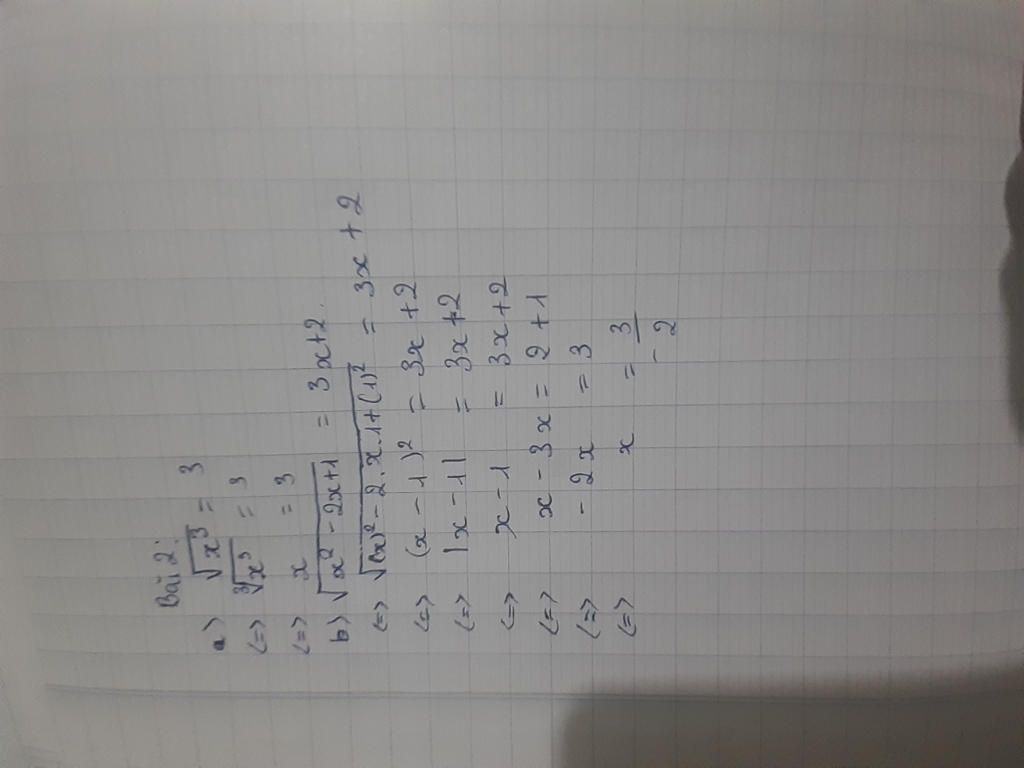 Bài 2:
a) √x³ = 3
<=> ³√x³ = 3
<=> x = 3
b) √x² - 2x+1 = 3x+2.
<=> √(x)² - 2.x.1+(1)² = 3x + 2
<=> (x - 1)² = 3x + 2
<=> |x - 1| = 3x + 2
<=> x - 1 = 3x + 2
<=> x - 3x = 2 + 1
<=> - 2x = 3
<=> x = 3/-2